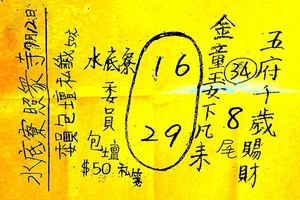 五府千歲賜財
34
8尾
金童玉女下凡来
16
29
水底寮委員
包壇
$50 私
委員包壇私
水底寮照象寺 9月12日